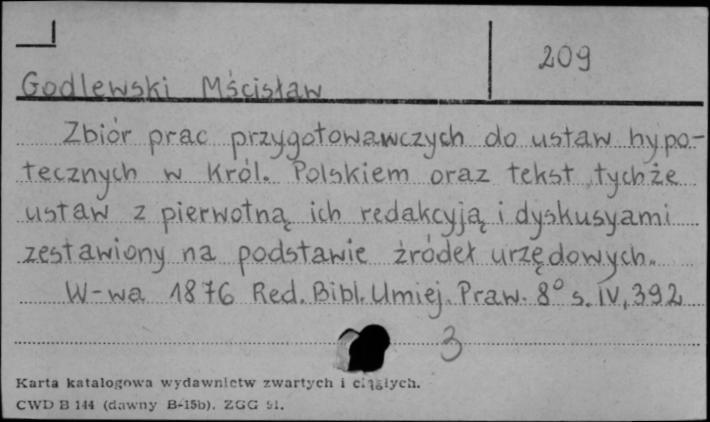 209
Godlewski Mścisław
Zbiór prac przygotowawczych do ustaw hypo-
tecznych w Król. Polskiem oraz tekst tychże
ustaw z pierwotną ich redakcyją i dyskusyami
zestawiony na podstawie źródeł urzędowych.
W-wa 1876 Red. Bibl. Umiej. Praw. 8° s. IV, 392
3
Karta katalogowa wydawnictw zwartych i ciągłych.
CWD B 144 (dawny B-15b). ZGG 51.